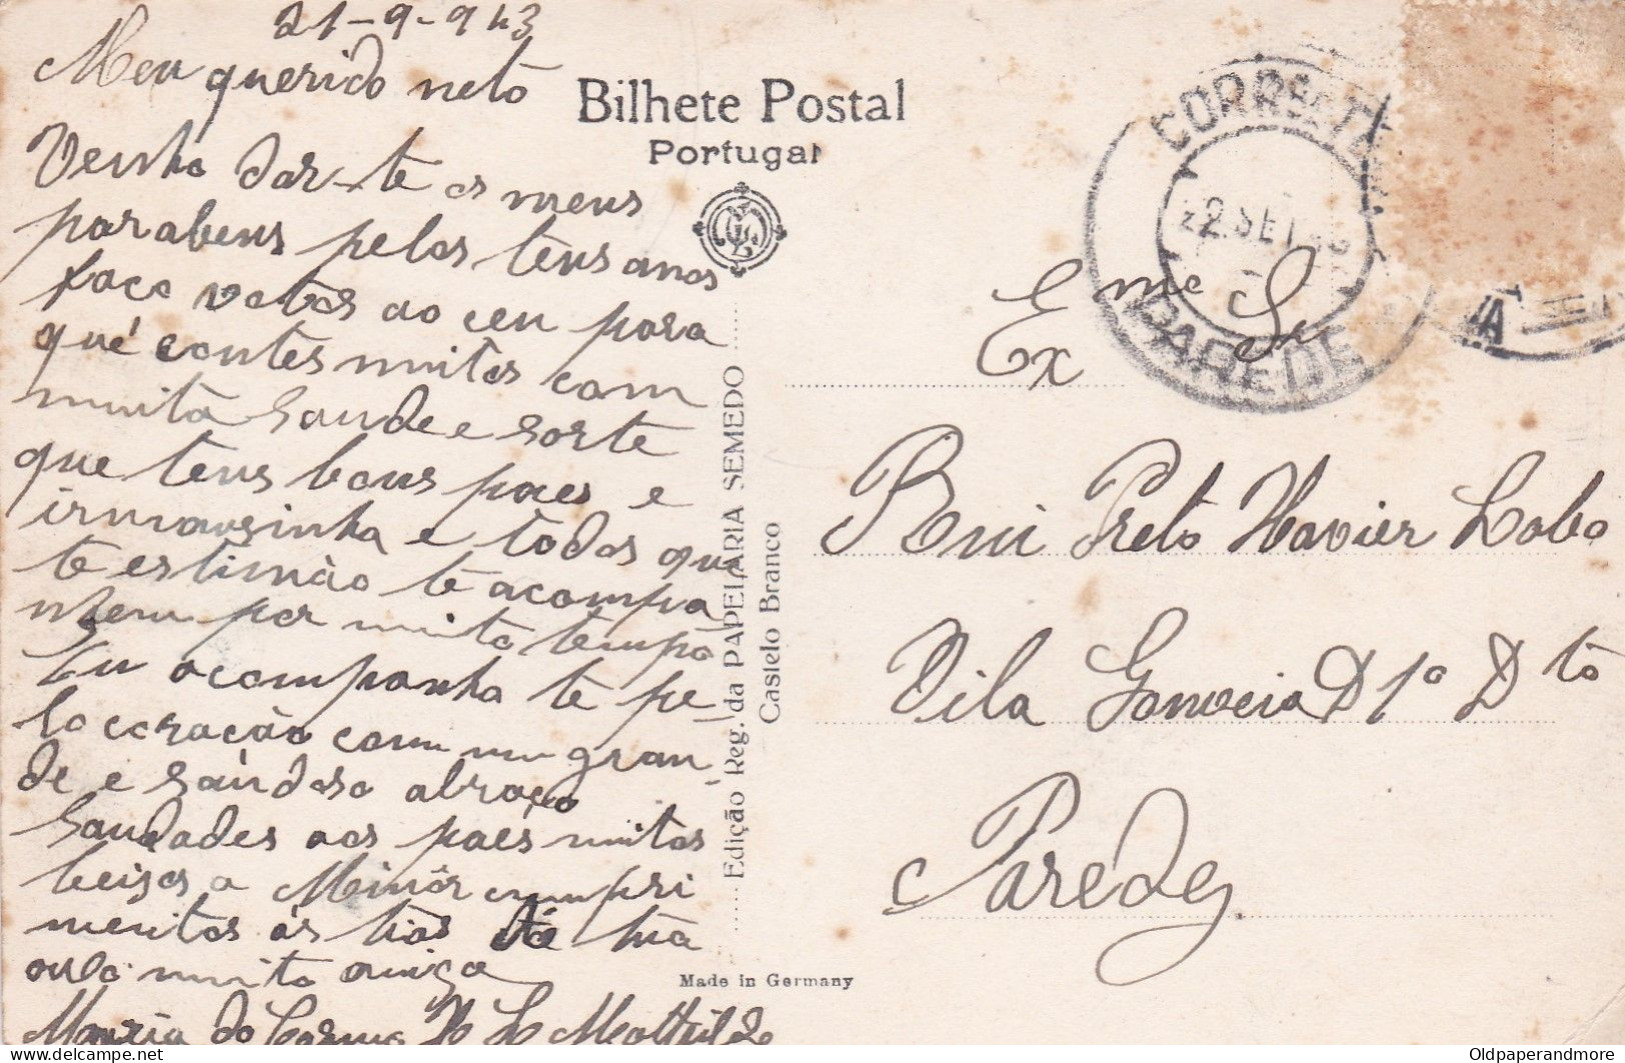 21-9-943
Meu querido neto
Venho dar-te os meus
parabens pelos teus anos
faço votos ao ceu para
qué contes muitos com
muita saude e sorte
que teus bons paes e
irmansinha e todos que
te estimão te acompa
nhem por muito tempo
Eu acompanho te pe-
lo coração com um gran-
de e saúdoso abraço
Saudades aos paés muitos
beijos a Minôr cumpri
mentos ás tias da tua
avó muito amiga
Maria do Carmo
Bilhete Postal
Portugal
Edição Reg. da PAPELARIA SEMEDO
Castelo Branco
Made in Germany
CORREIO
22 SET 43
PAREDE
Exmo Sr
Preto Xavier Lobo
Vila Gouveia D 1º Dto
Parede
Oldpaperandmore
delcampe.net